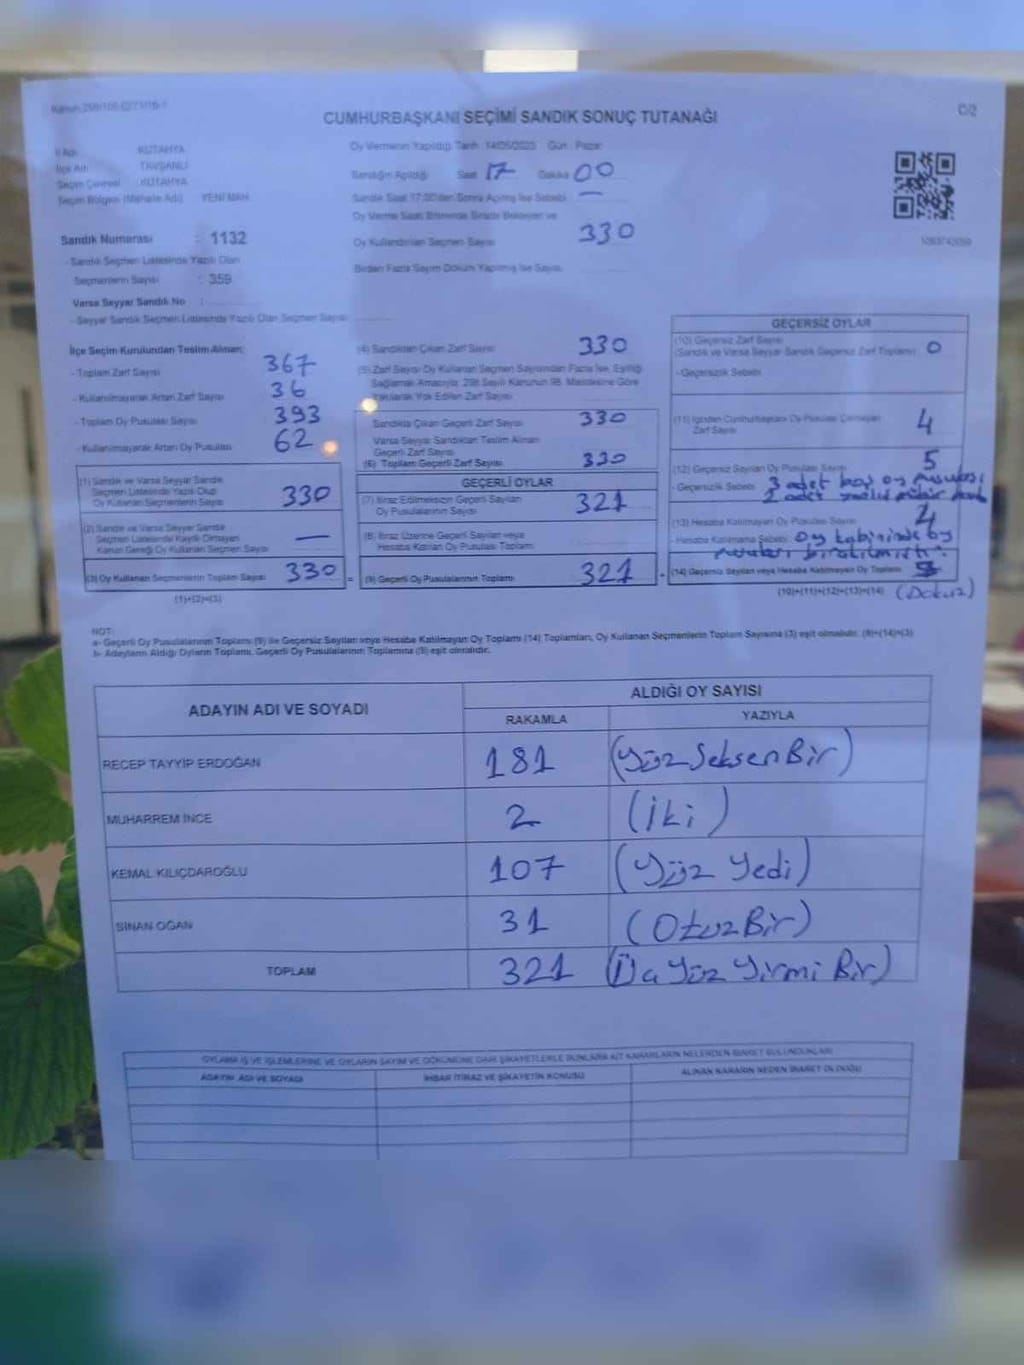 CUMHURBAŞKANI SEÇİMİ SANDIK SONUÇ TUTANAĞI
C/2
İl Adı : KÜTAHYA
İlçe Adı : TAVŞANLI
Seçim Çevresi : KÜTAHYA
Seçim Bölgesi (Mahalle Adı) YENİ MAH.
Oy Vermenin Yapıldığı Tarih : 14/05/2023 Gün : Pazar
Sandığın Açıldığı Saat 17 Dakika 00
Sandık Saat 17:00'den Sonra Açılmış İse Sebebi —
Oy Verme Saati Bitiminde Sırada Bekleyen ve
Oy Kullandırılan Seçmen Sayısı 330
Birden Fazla Sayım Döküm Yapılmış İse Sayısı
Sandık Numarası : 1132
- Sandık Seçmen Listesinde Yazılı Olan
Seçmenlerin Sayısı : 359
Varsa Seyyar Sandık No :
- Seyyar Sandık Seçmen Listesinde Yazılı Olan Seçmen Sayısı
İlçe Seçim Kurulundan Teslim Alınan:
- Toplam Zarf Sayısı 367
- Kullanılmayarak Artan Zarf Sayısı 36
- Toplam Oy Pusulası Sayısı 393
- Kullanılmayarak Artan Oy Pusulası 62
(1) Sandık ve Varsa Seyyar Sandık
Seçmen Listesinde Yazılı Olup
Oy Kullanan Seçmenlerin Sayısı 330
(2) Sandık ve Varsa Seyyar Sandık
Seçmen Listesinde Kaydı Olmayan
Kanun Gereği Oy Kullanan Seçmen Sayısı —
(3) Oy Kullanan Seçmenlerin Toplam Sayısı 330 =
(1)+(2)=(3)
(4) Sandıktan Çıkan Zarf Sayısı 330
(5) Zarf Sayısı Oy Kullanan Seçmen Sayısından Fazla İse, Eşitliği
Sağlamak Amacıyla, 298 Sayılı Kanunun 98. Maddesine Göre
Yakılarak Yok Edilen Zarf Sayısı
Sandıkta Çıkan Geçerli Zarf Sayısı 330
Varsa Seyyar Sandıktan Teslim Alınan
Geçerli Zarf Sayısı
(6) Toplam Geçerli Zarf Sayısı 330
GEÇERLİ OYLAR
(7) İtiraz Edilmeksizin Geçerli Sayılan
Oy Pusulalarının Sayısı 321
(8) İtiraz Üzerine Geçerli Sayılan veya
Hesaba Katılan Oy Pusulası Toplamı
(9) Geçerli Oy Pusulalarının Toplamı 321 +
GEÇERSİZ OYLAR
(10) Geçersiz Zarf Sayısı
(Sandık ve Varsa Seyyar Sandık Geçersiz Zarf Toplamı) 0
- Geçersizlik Sebebi
(11) İçinden Cumhurbaşkanı Oy Pusulası Çıkmayan
Zarf Sayısı 4
(12) Geçersiz Sayılan Oy Pusulası Sayısı 5
- Geçersizlik Sebebi 3 adet boş oy pusulası
2 adet
(13) Hesaba Katılmayan Oy Pusulası Sayısı 4
- Hesaba Katılmama Sebebi Oy kabininde oy
pusulası bırakılmıştır.
(14) Geçersiz Sayılan veya Hesaba Katılmayan Oy Toplamı
(10)+(11)+(12)+(13)=(14) (Dokuz)
NOT:
a- Geçerli Oy Pusulalarının Toplamı (9) ile Geçersiz Sayılan veya Hesaba Katılmayan Oy Toplamı (14) Toplamları, Oy Kullanan Seçmenlerin Toplam Sayısına (3) eşit olmalıdır. (9)+(14)=(3)
b- Adayların Aldığı Oyların Toplamı, Geçerli Oy Pusulalarının Toplamına (9) eşit olmalıdır.
ADAYIN ADI VE SOYADI
ALDIĞI OY SAYISI
RAKAMLA YAZIYLA
RECEP TAYYİP ERDOĞAN 181 (Yüz Seksen Bir)
MUHARREM İNCE 2 (İki)
KEMAL KILIÇDAROĞLU 107 (Yüz Yedi)
SİNAN OĞAN 31 (Otuz Bir)
TOPLAM 321 (Üç Yüz Yirmi Bir)
OYLAMA İŞ VE İŞLEMLERİNE VE OYLARIN SAYIM VE DÖKÜMÜNE DAİR ŞİKAYETLERLE BUNLARA AİT KARARLARIN NELERDEN İBARET BULUNDUKLARI
ADAYIN ADI VE SOYADI
İHBAR İTİRAZ VE ŞİKAYETİN KONUSU
ALINAN KARARIN NEDEN İBARET OLDUĞU